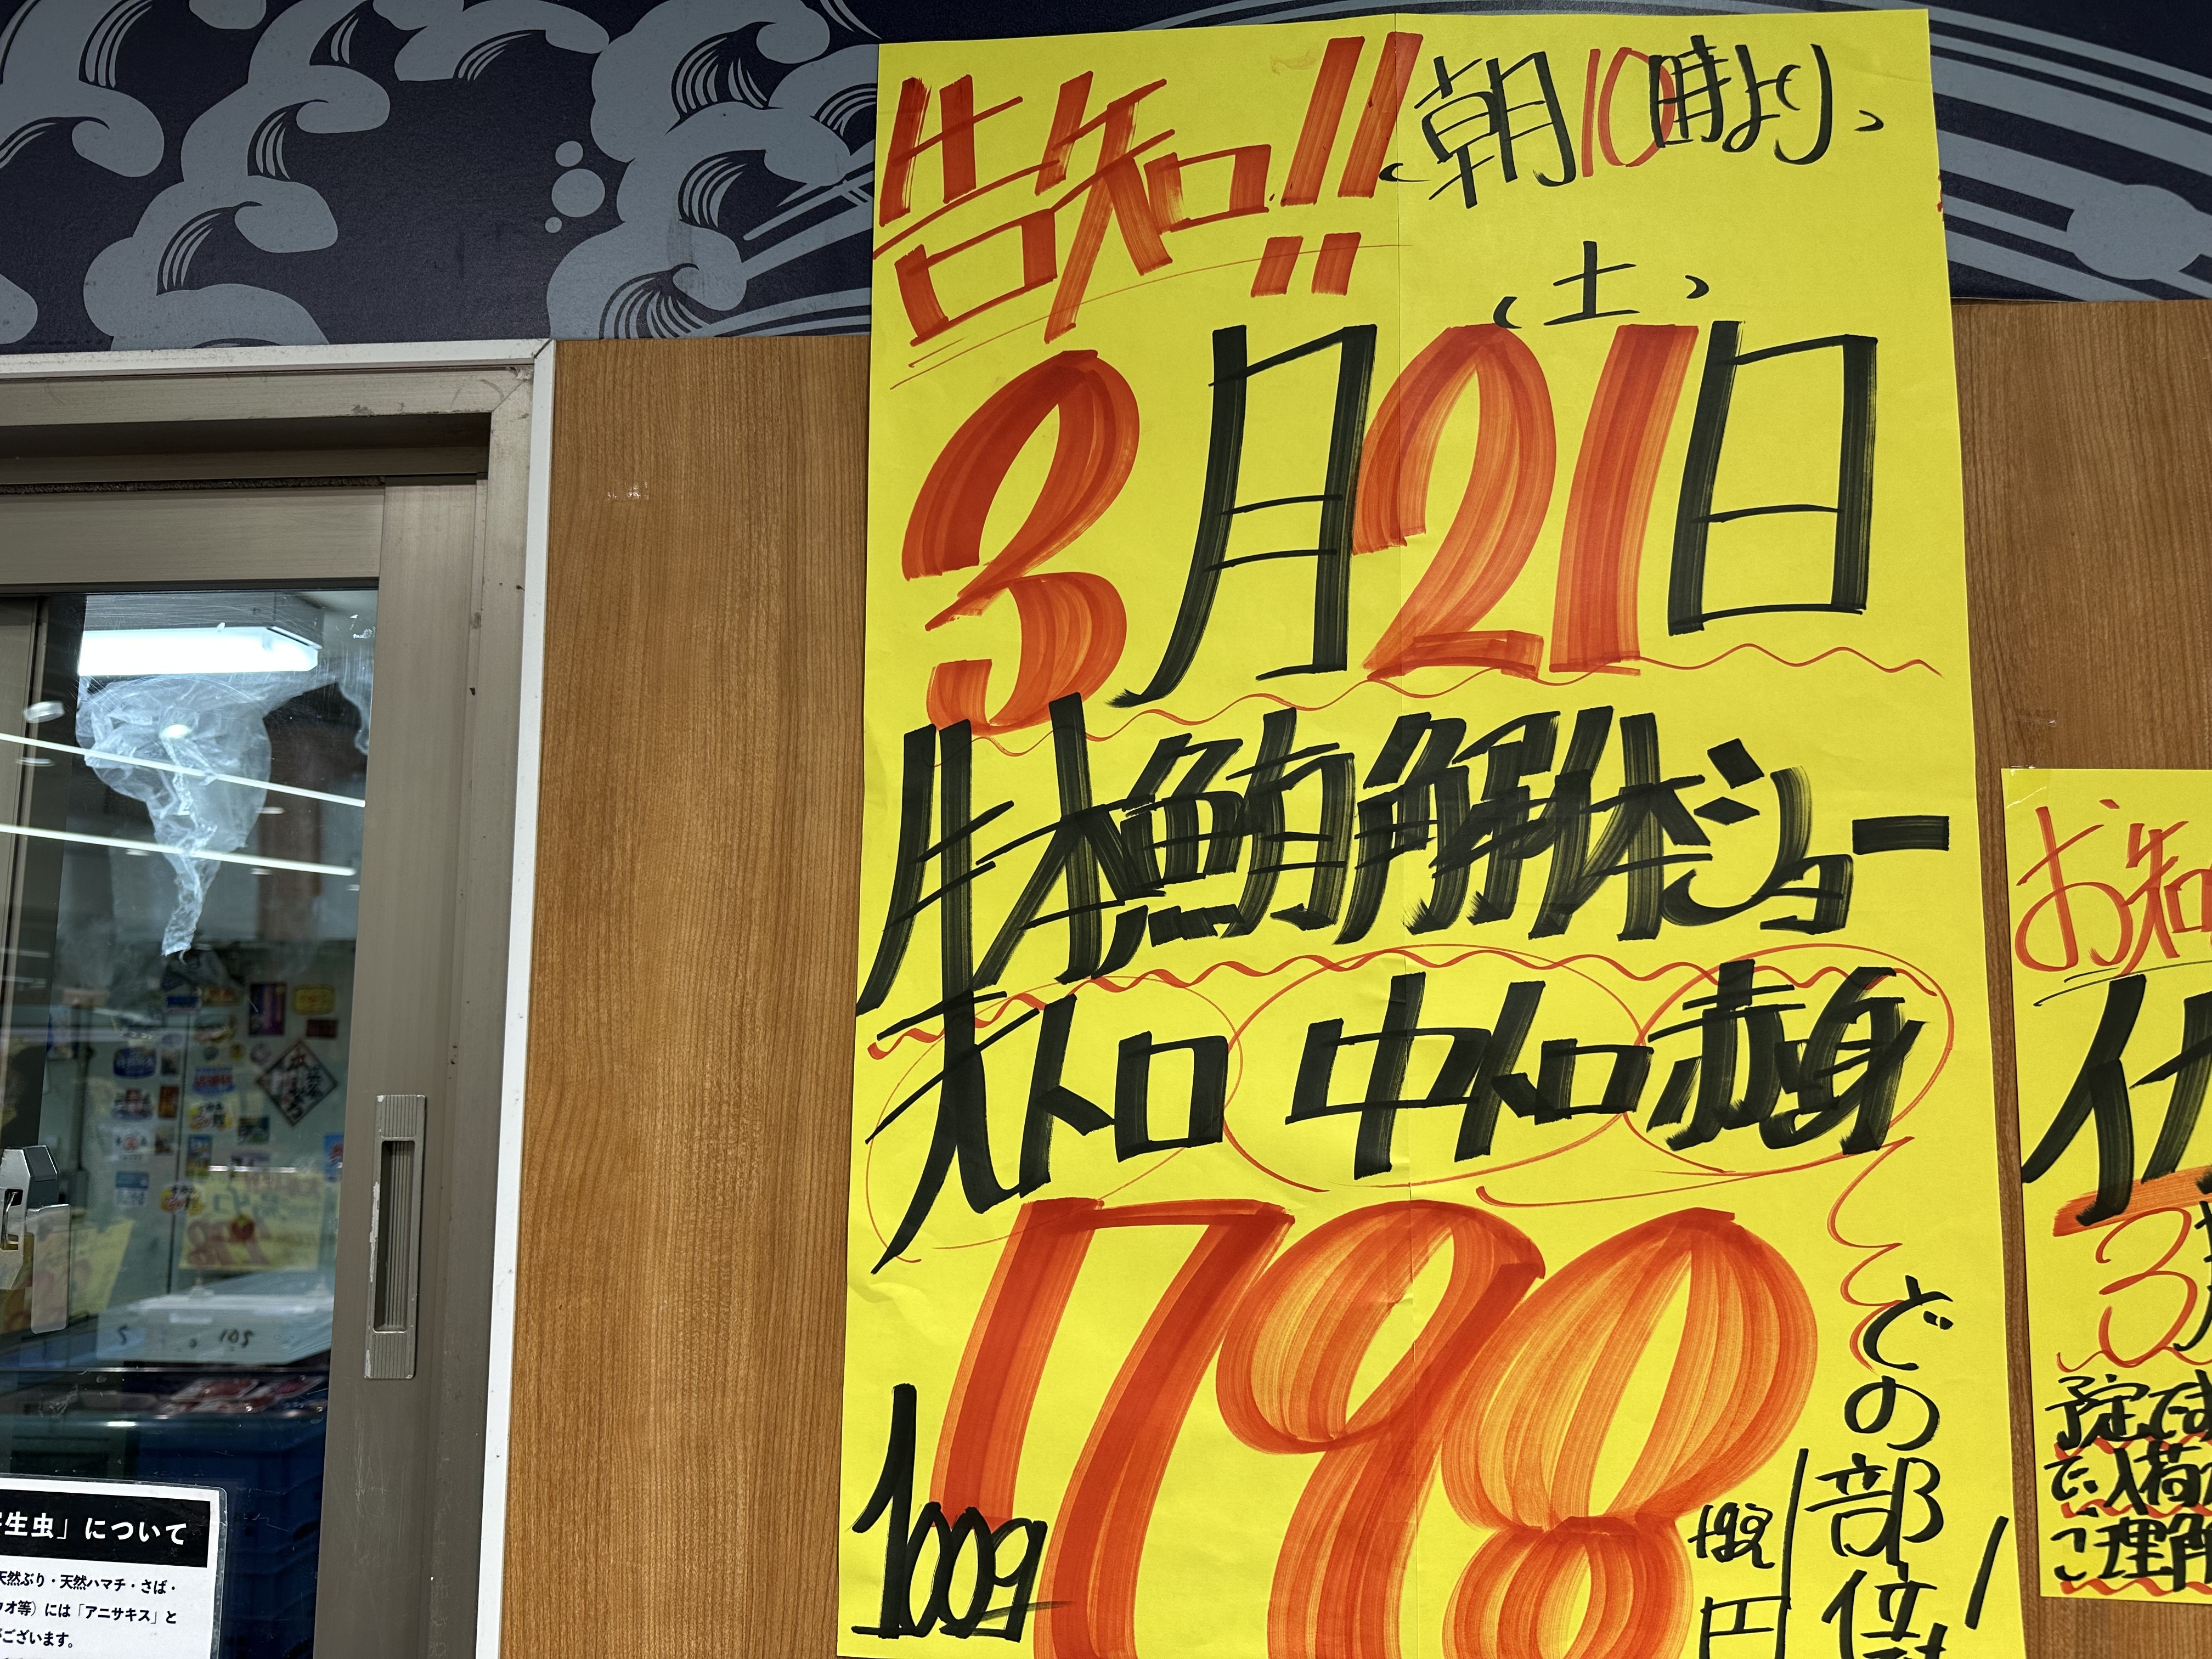 告知!!
(朝10時より)
(土)
3月21日
生本鮪解体ショー
大トロ 中トロ 赤身
どの部位も
100g
798
税抜
円
お知
3
予定です
で、入荷
ご理解
生虫」について
天然ぶり・天然ハマチ・さば・
オ等)には「アニサキス」と
ございます。